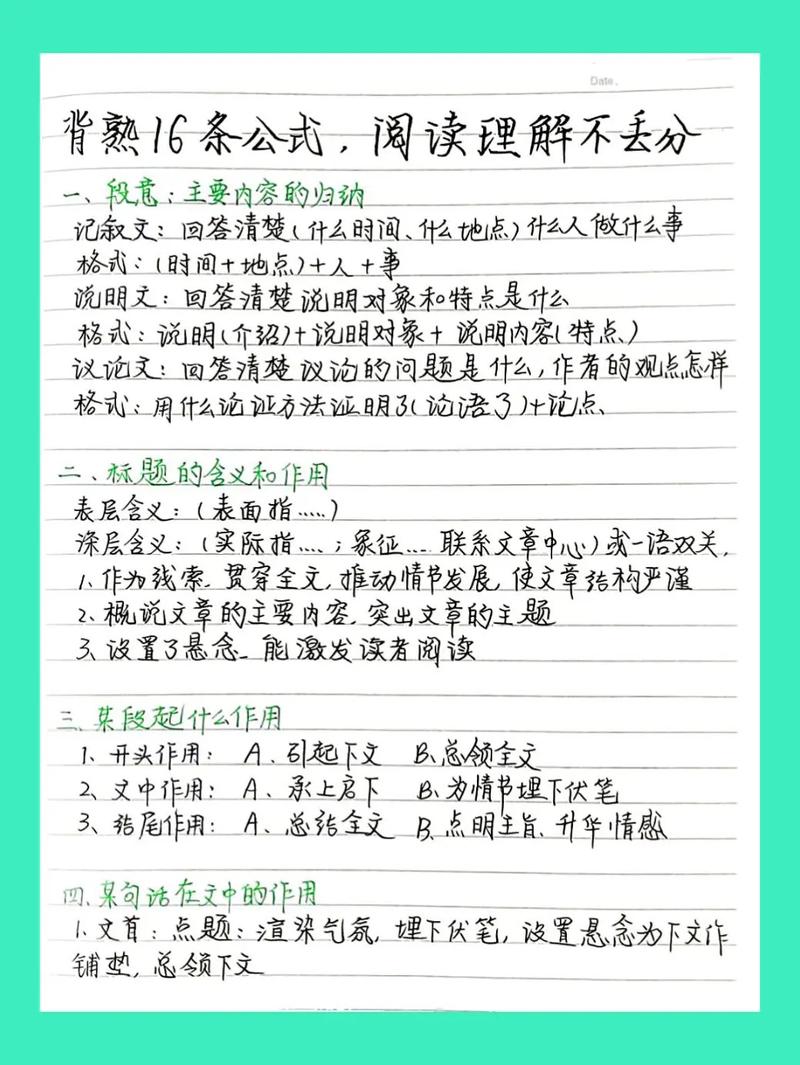 Date.
背熟16条公式，阅读理解不丢分
一、段意：主要内容的归纳
记叙文：回答清楚(什么时间、什么地点)什么人做什么事
格式：(时间+地点)+人+事
说明文：回答清楚说明对象和特点是什么
格式：说明(介绍)+说明对象+说明内容(特点)
议论文：回答清楚议论的问题是什么，作者的观点怎样
格式：用什么论证方法证明了(论语了)+论点、
二、标题的含义和作用
表层含义：(表面指……)
深层含义：(实际指……；象征……联系文章中心)或一语双关，
1、作为线索、贯穿全文，推动情节发展，使文章结构严谨
2、概说文章的主要内容，突出文章的主题
3、设置了悬念、能激发读者阅读
三、某段起什么作用
1、开头作用： A、引起下文 B、总领全文
2、文中作用： A、承上启下 B、为情节埋下伏笔
3、结尾作用： A、总结全文 B、点明主旨、升华情感
四、某句话在文中的作用
1、文首：点题：渲染气氛，埋下伏笔，设置悬念为下文作
铺垫，总领下文